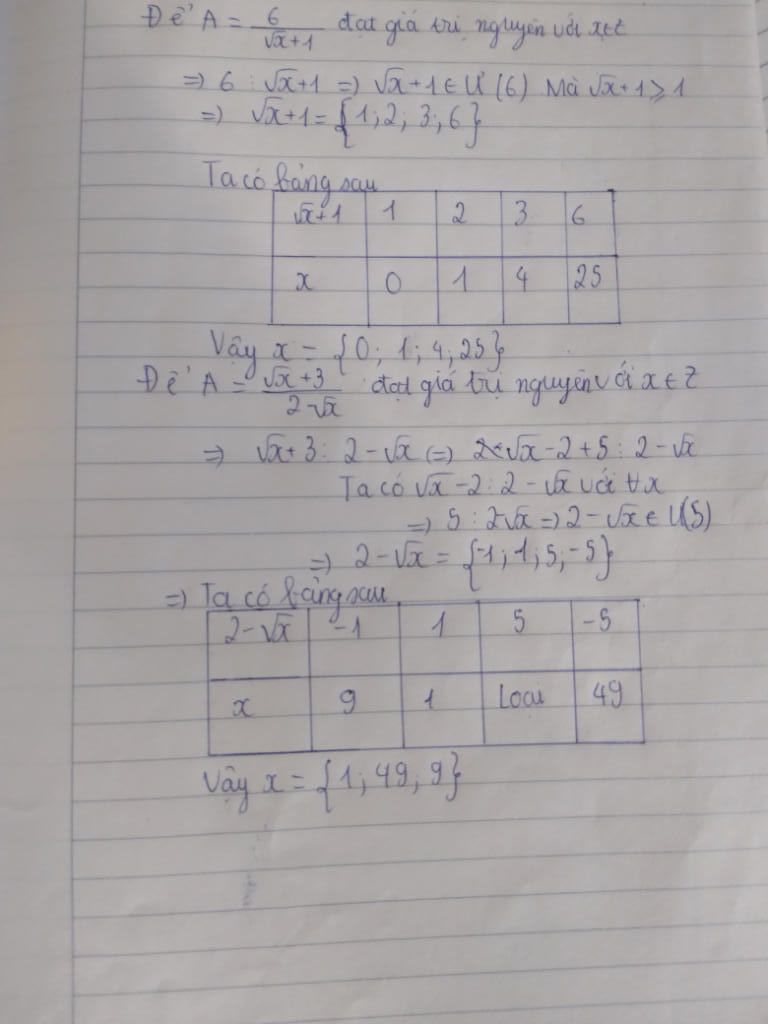 Để A = 6/(√x+1) đạt giá trị nguyên với x∈Z
=> 6 ⋮ √x+1 => √x+1 ∈ Ư (6) Mà √x+1 ⩾ 1
=> √x+1 = {1; 2; 3; 6}
Ta có bảng sau
√x+1 1 2 3 6
x 0 1 4 25
Vậy x = {0; 1; 4; 25}
Để A = (√x+3)/(2-√x) đạt giá trị nguyên với x ∈ Z
=> √x+3 ⋮ 2-√x (=) √x-2+5 ⋮ 2-√x
Ta có √x-2 ⋮ 2-√x với ∀x
=> 5 ⋮ 2√x => 2-√x ∈ Ư(5)
=> 2-√x = {-1; 1; 5; -5}
=> Ta có bảng sau
2-√x -1 1 5 -5
x 9 1 Loại 49
Vậy x = {1; 49; 9}